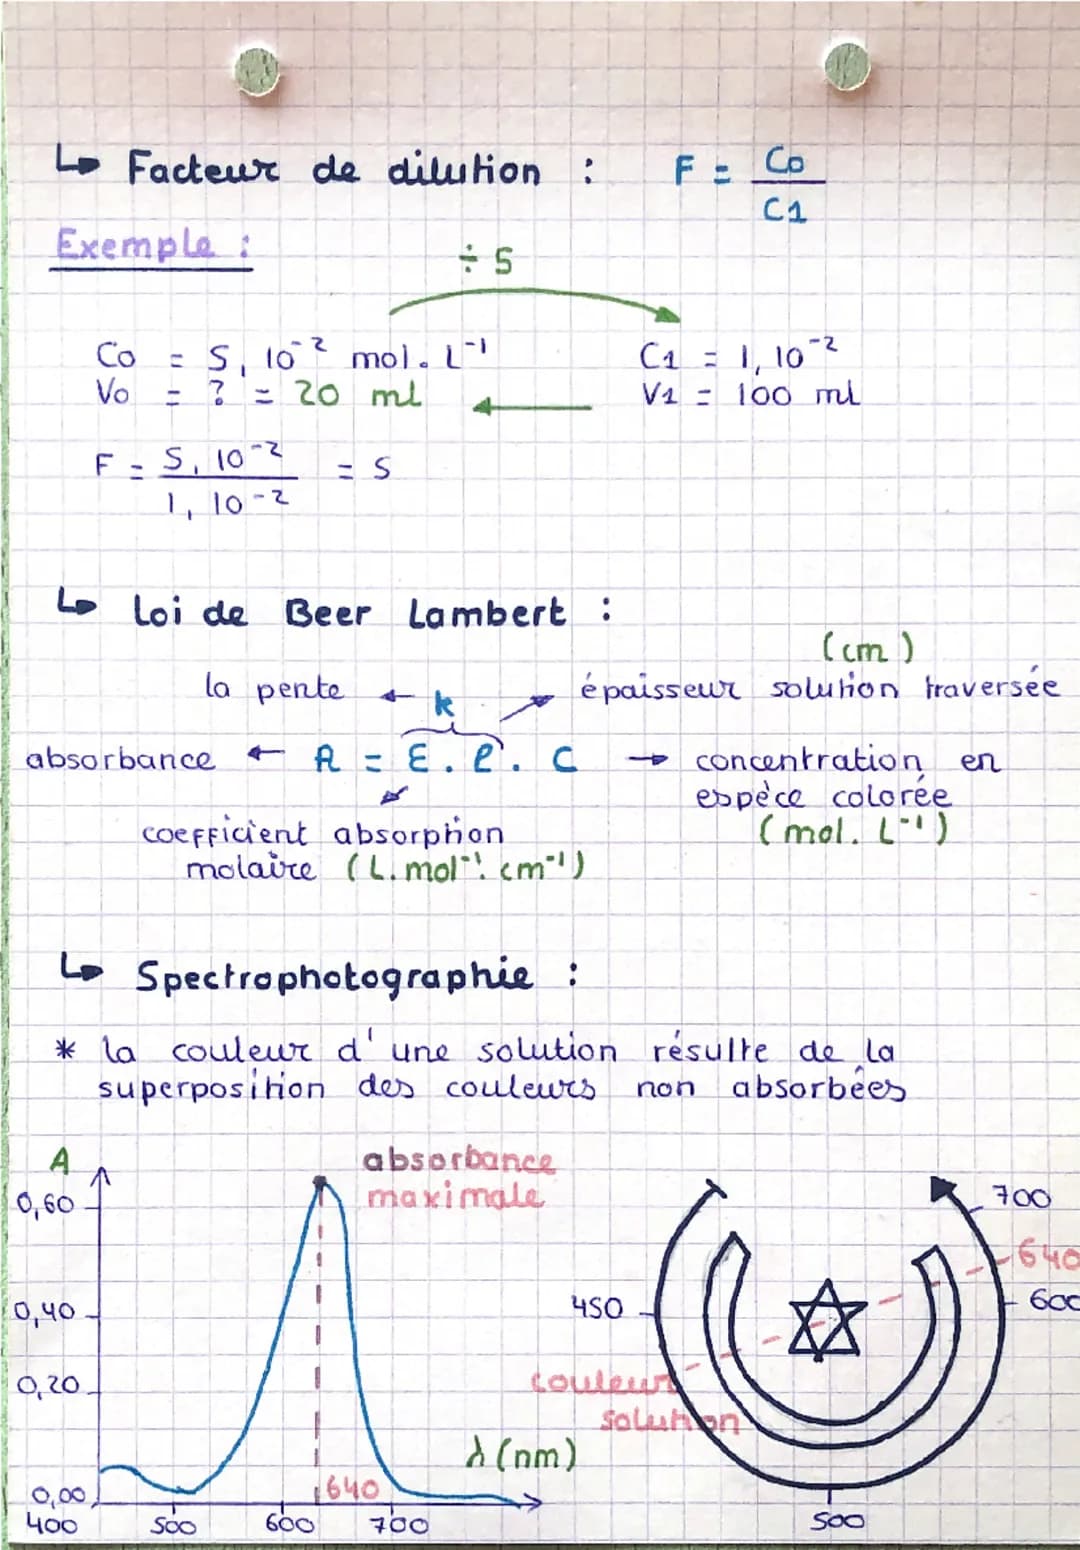 ↳ Facteur de dilution : F = C0 / C1
Exemple :
÷ 5
C0 = 5,10⁻² mol. L⁻¹ C1 = 1,10⁻²
V0 = ? = 20 ml ← V1 = 100 ml
F = 5,10⁻² / 1,10⁻² = 5
↳ Loi de Beer Lambert :
(cm)
la pente ← k épaisseur solution traversée
absorbance ← A = Ɛ. l. C → concentration en
espèce colorée
(mol. L⁻¹)
coefficient absorption
molaire (L. mol⁻¹. cm⁻¹)
↳ Spectrophotographie :
* la couleur d'une solution résulte de la
superposition des couleurs non absorbées
A
absorbance
maximale
0,60
0,40
0,20
0,00
400 500 600 700
640
λ (nm)
700
640
600
450
couleur
solution
500